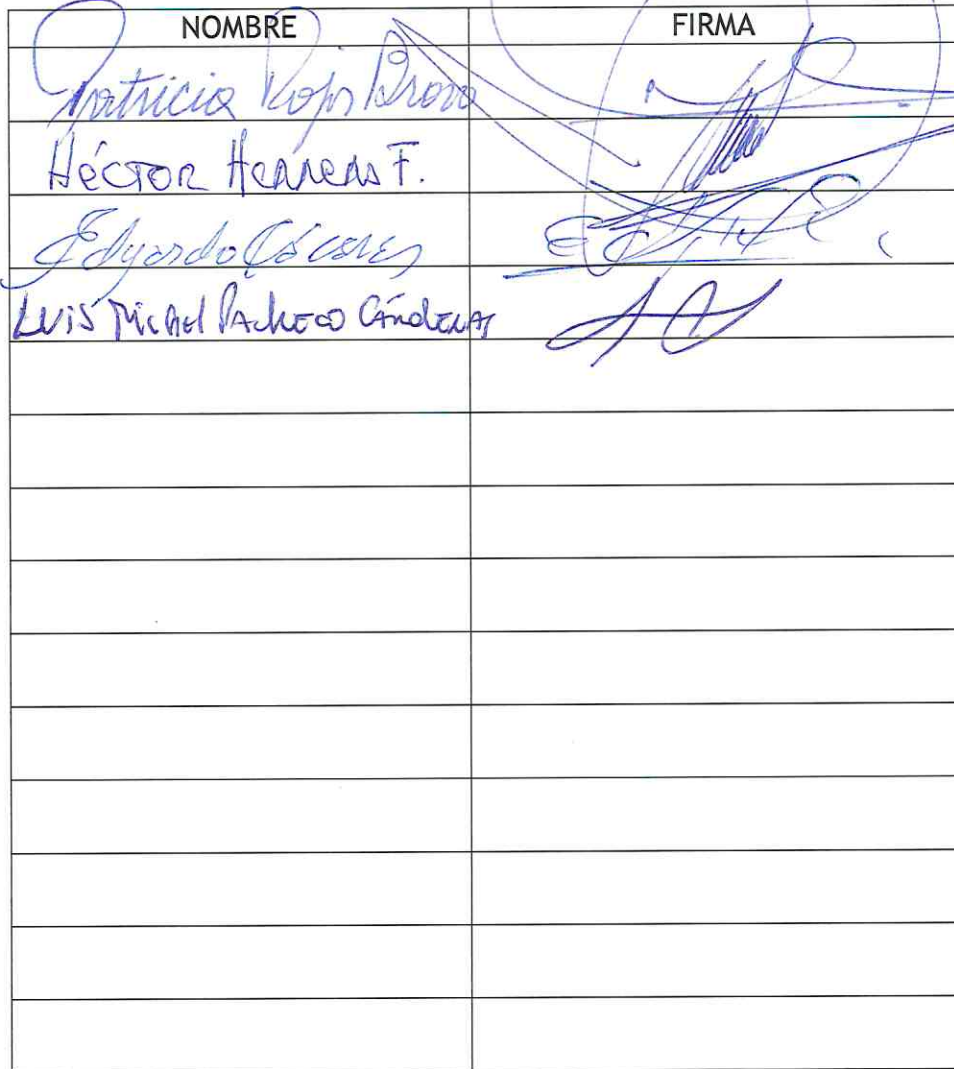 NOMBRE FIRMA
Patricia Rojas Bravo
Héctor Herrera F.
Eduardo Cáceres
Luis Michel Pacheco Cárdenas